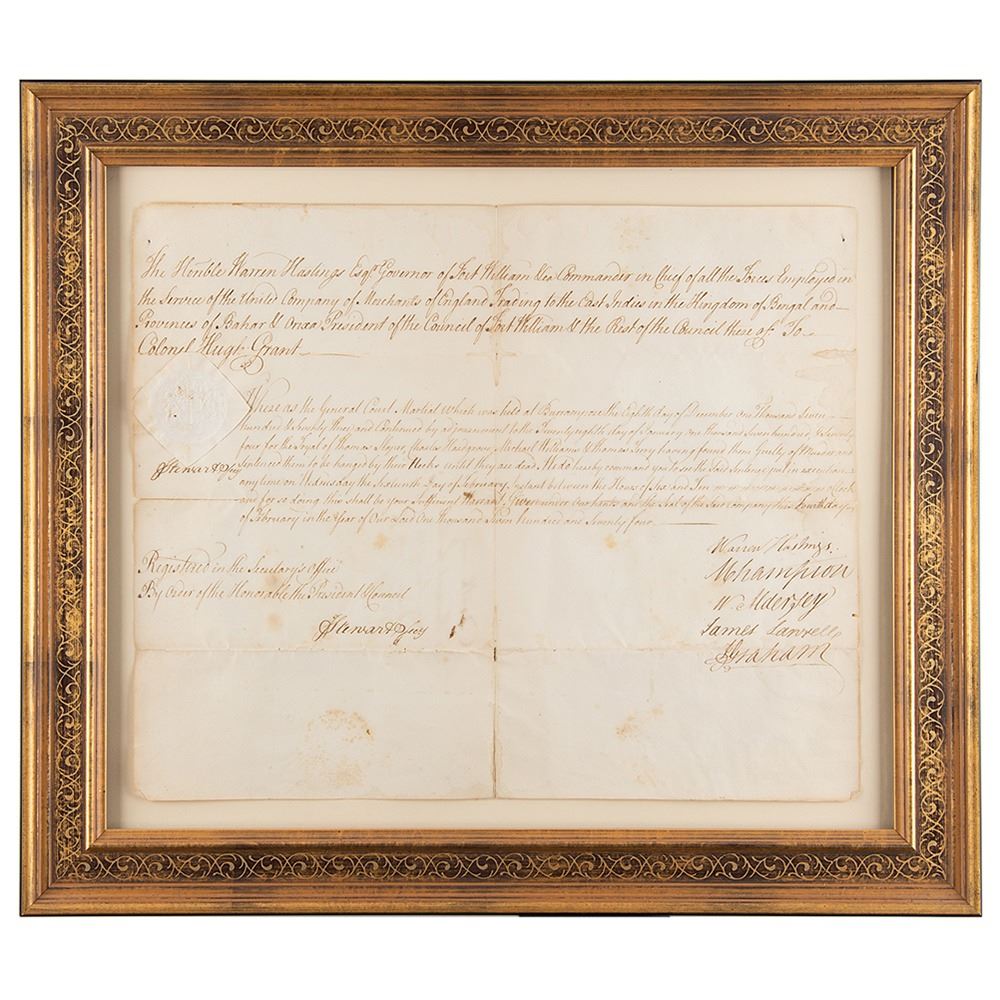 The Honble Warren Hastings Esqr. Governor of Fort William &ca Commander in Chief of all the Forces Employed in
the Service of the United Company of Merchants of England Trading to the East Indies in the Kingdom of Bengal and
Provinces of Bahar & Orixa President of the Council of Fort William & the Rest of the Council there of To
Colonel Hugh Grant
Where as the General Court Martial which was held at the Eighth day of December One Thousand Seven
hundred & Seventy three and Continued by adjournment to the Twenty eighth day of January one thousand Seven hundred & Seventy
four for the Tryal of Thomas Charles Hardgrove Michael Williams & Thomas having found them Guilty of Murder and
Sentenced them to be hanged by their Necks until they are dead. We do hereby command you to see the Said Sentence put in execution
any time on Wednesday the Sixteenth Day of February Instant between the Hours of Six and Ten
and for so doing this Shall be your Sufficient Warrant. Given under Our hands and the Seal of the Said Company this Fourth day
of February in the Year of Our Lord One Thousand Seven hundred and Seventy four
JStewart Secy
Registered in the Secretary's Office
By Order of the Honorable the President & Council
JStewart Secy
Warren Hastings.
AChampion
W. Aldersey
James Lawrell
JGraham